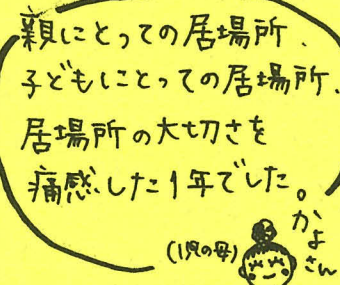 親にとっての居場所、
子どもにとっての居場所、
居場所の大切さを
痛感した1年でした。
(1児の母)
かよさん